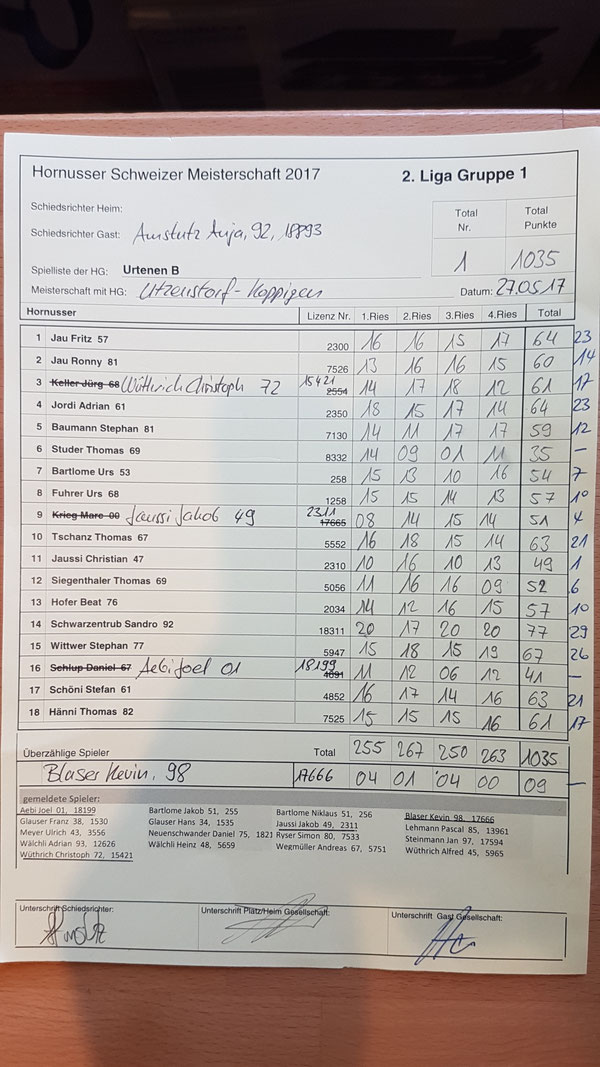 Hornusser Schweizer Meisterschaft 2017 2. Liga Gruppe 1
Schiedsrichter Heim: Total Nr. Total Punkte
Schiedsrichter Gast: Amstutz Anja, 92, 18793
1 1035
Spielliste der HG: Urtenen B
Meisterschaft mit HG: Utzenstorf-Koppigen Datum: 27.05.17
Hornusser Lizenz Nr. 1.Ries 2.Ries 3.Ries 4.Ries Total
1 Jau Fritz 57 2300 16 16 15 17 64 23
2 Jau Ronny 81 7526 13 16 16 15 60 14
3 Keller Jürg 68 Wüthrich Christoph 72 15421 2554 14 17 18 12 61 17
4 Jordi Adrian 61 2350 18 15 17 14 64 23
5 Baumann Stephan 81 7130 14 11 17 17 59 12
6 Studer Thomas 69 8332 14 09 01 11 35 –
7 Bartlome Urs 53 258 15 13 10 16 54 7
8 Fuhrer Urs 68 1258 15 15 14 13 57 10
9 Krieg Marc 00 Jaussi Jakob 49 2311 17665 08 14 15 14 51 4
10 Tschanz Thomas 67 5552 16 18 15 14 63 21
11 Jaussi Christian 47 2310 10 16 10 13 49 1
12 Siegenthaler Thomas 69 5056 11 16 16 09 52 6
13 Hofer Beat 76 2034 14 12 16 15 57 10
14 Schwarzentrub Sandro 92 18311 20 17 20 20 77 29
15 Wittwer Stephan 77 5947 15 18 15 19 67 26
16 Schlup Daniel 67 Aebi Joel 01 18199 4891 11 12 06 12 41 –
17 Schöni Stefan 61 4852 16 17 14 16 63 21
18 Hänni Thomas 82 7525 15 15 15 16 61 17
Überzählige Spieler Total 255 267 250 263 1035
Blaser Kevin, 98 17666 04 01 04 00 09 –
gemeldete Spieler:
Aebi Joel 01, 18199 Bartlome Jakob 51, 255 Bartlome Niklaus 51, 256 Blaser Kevin 98, 17666
Glauser Franz 38, 1530 Glauser Hans 34, 1535 Jaussi Jakob 49, 2311 Lehmann Pascal 85, 13961
Meyer Ulrich 43, 3556 Neuenschwander Daniel 75, 1821 Ryser Simon 80, 7533 Steinmann Jan 97, 17594
Wälchli Adrian 93, 12626 Wälchli Heinz 48, 5659 Wegmüller Andreas 67, 5751 Wüthrich Alfred 45, 5965
Wüthrich Christoph 72, 15421
Unterschrift Schiedsrichter: Unterschrift Platz/Heim Gesellschaft: Unterschrift Gast Gesellschaft: